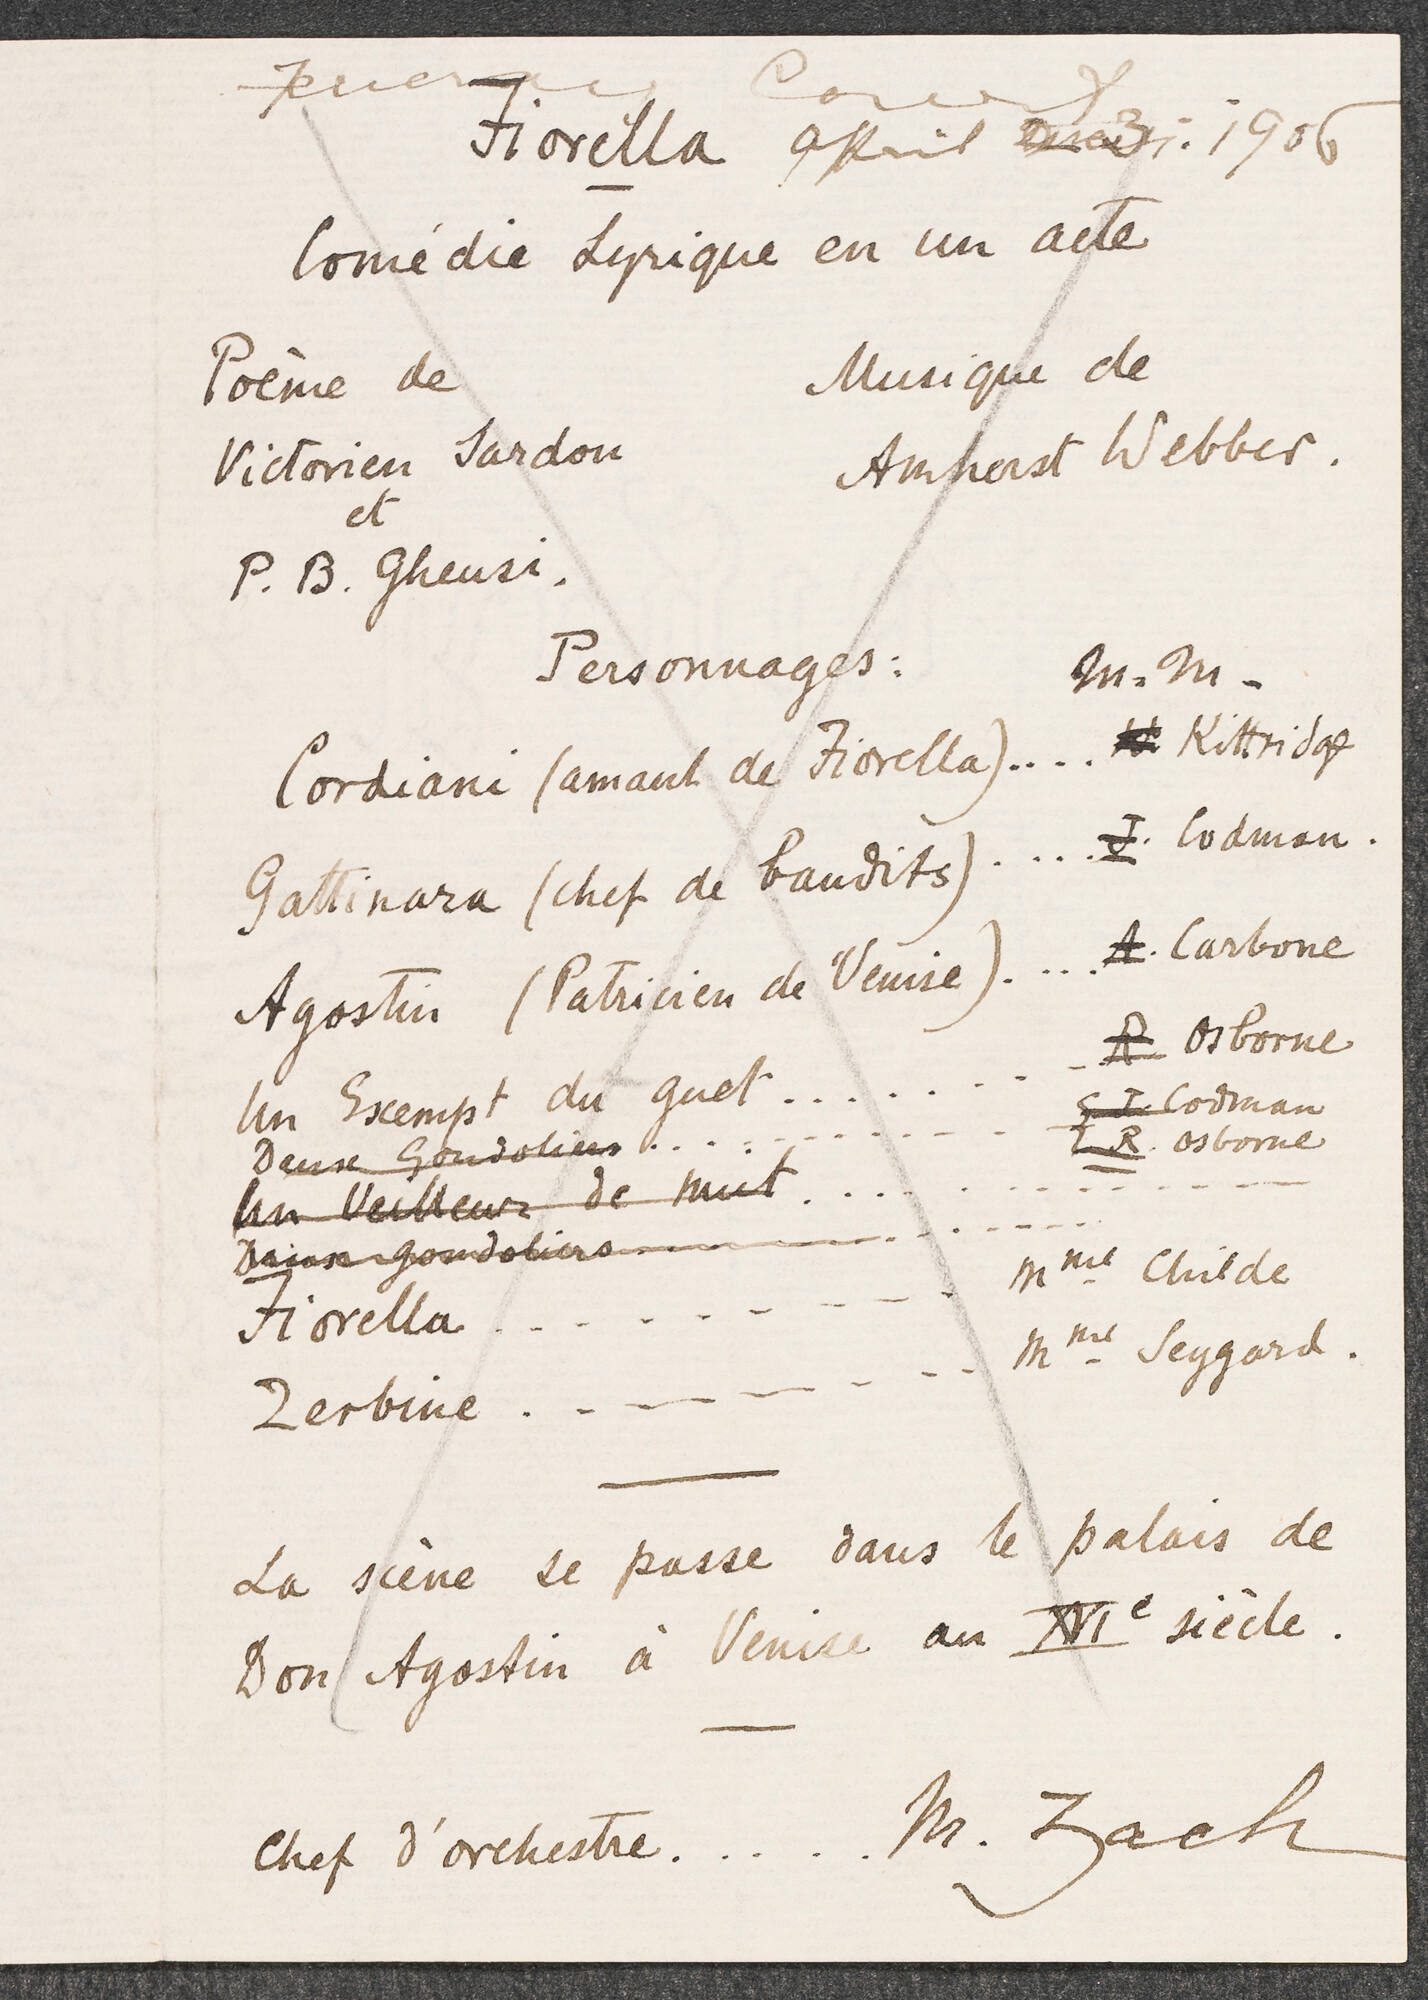 Fiorella April 1906
Comédie Lyrique en un acte
Poême de
Victorien Sardou
et
P. B. Gheusi.
Musique de
Amherst Webber.
Personnages: M. M.
Cordiani (amant de Fiorella).... Kittridge
Gattinara (chef de bandits).....J. Codman.
Agostin (Patricien de Venise)....A. Carbone
Un Exempt du guet ........ R Osborne
Deux Gondoliers .......... J. Codman
R. Osborne
Un Veilleur de nuit ..........
Deux gondoliers ..........
Fiorella ........ Mme Childe
Zerbine ........ Mme Seygard.
La scène se passe dans le palais de
Don Agostin à Venise au XVIe siècle.
Chef d'orchestre..... M. Zach